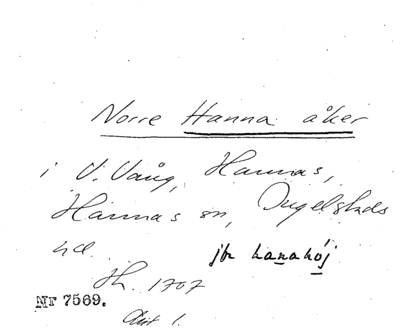 Norre Hanna åker
i V. Vång, Hannas,
Hannas sn, Ingelstads
hd. jfr hanahöj
Lh. 1707
NT 7569.
Akt 1.